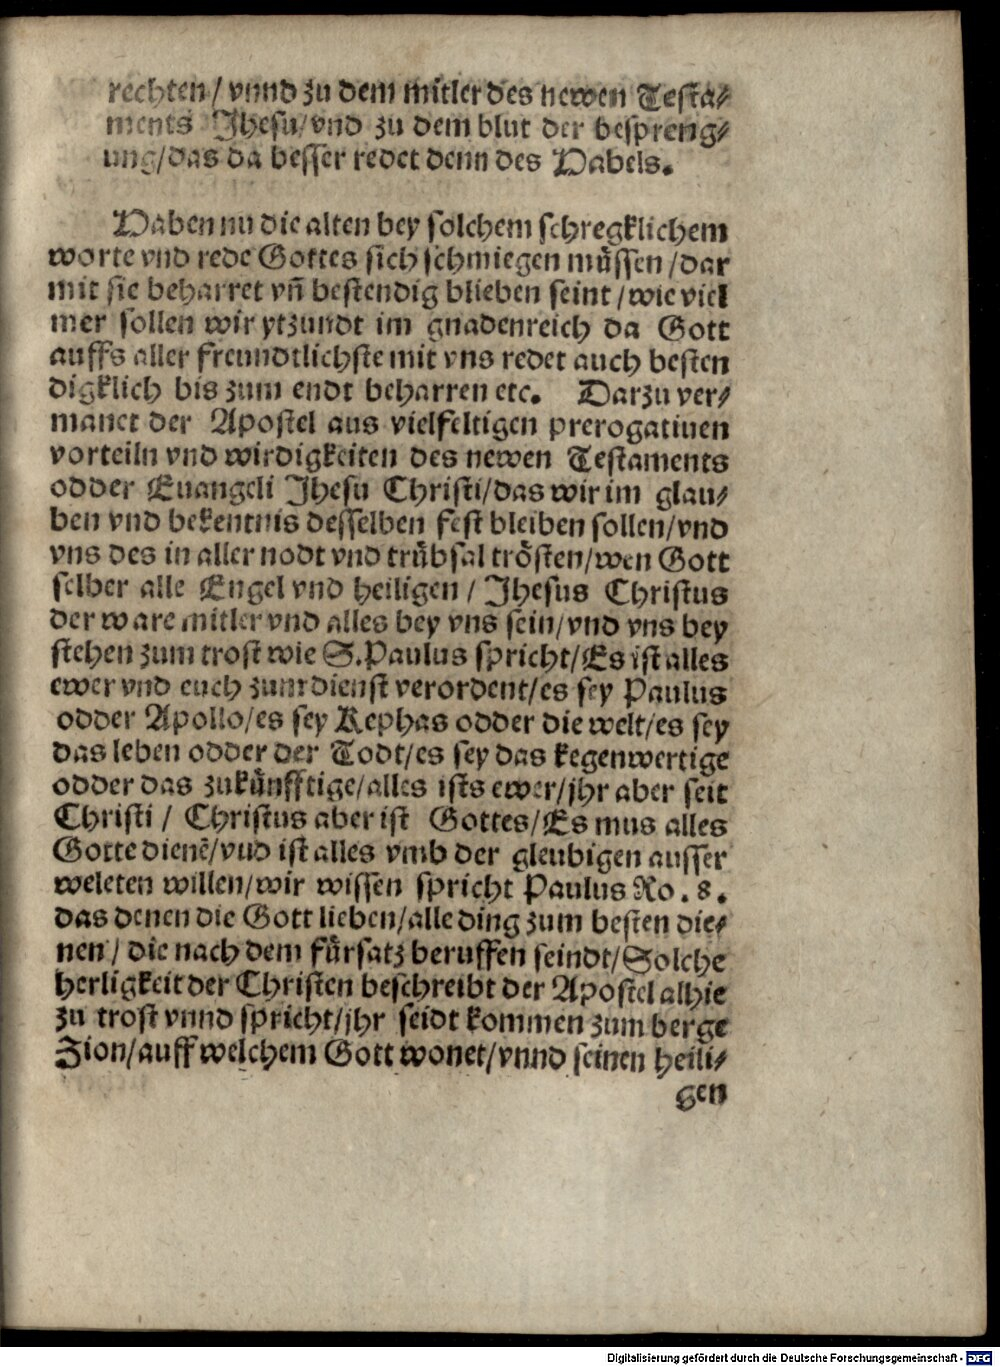 rechten/ vnnd zu dem mitler des newen Testa⸗
ments Jhesu/vnd zu dem blut der bespreng⸗
ung/das da besser redet denn des Habels.
Haben nu die alten bey solchem schregklichem
worte vnd rede Gottes sich schmiegen müssen/dar
mit sie beharret vñ bestendig blieben seint/wie viel
mer sollen wir ytzundt im gnadenreich da Gott
auffs aller freundtlichste mit vns redet auch besten
digklich bis zum endt beharren etc. Darzu ver⸗
manet der Apostel aus vielfeltigen prerogatiuen
vorteiln vnd wirdigkeiten des newen Testaments
odder Euangeli Jhesu Christi/das wir im glau⸗
ben vnd bekentnis desselben fest bleiben sollen/vnd
vns des in aller nodt vnd trübsal trösten/wen Gott
selber alle Engel vnd heiligen/ Jhesus Christus
der ware mitler vnd alles bey vns sein/vnd vns bey
stehen zum trost wie S.Paulus spricht/Es ist alles
ewer vnd euch zum dienst verordent/es sey Paulus
odder Apollo/es sey Kephas odder die welt/es sey
das leben odder der Todt/es sey das kegenwertige
odder das zukünfftige/alles ists ewer/jhr aber seit
Christi/ Christus aber ist Gottes/Es mus alles
Gotte dienẽ/vnd ist alles vmb der gleubigen ausser
weleten willen/wir wissen spricht Paulus Ro.8.
das denen die Gott lieben/alle ding zum besten die⸗
nen/ die nach dem fürsatz beruffen seindt/Solche
herligkeit der Christen beschreibt der Apostel alhie
zu trost vnnd spricht/jhr seidt kommen zum berge
Zion/auff welchem Gott wonet/vnnd seinen heili⸗
gen
Digitalisierung gefördert durch die Deutsche Forschungsgemeinschaft - DFG